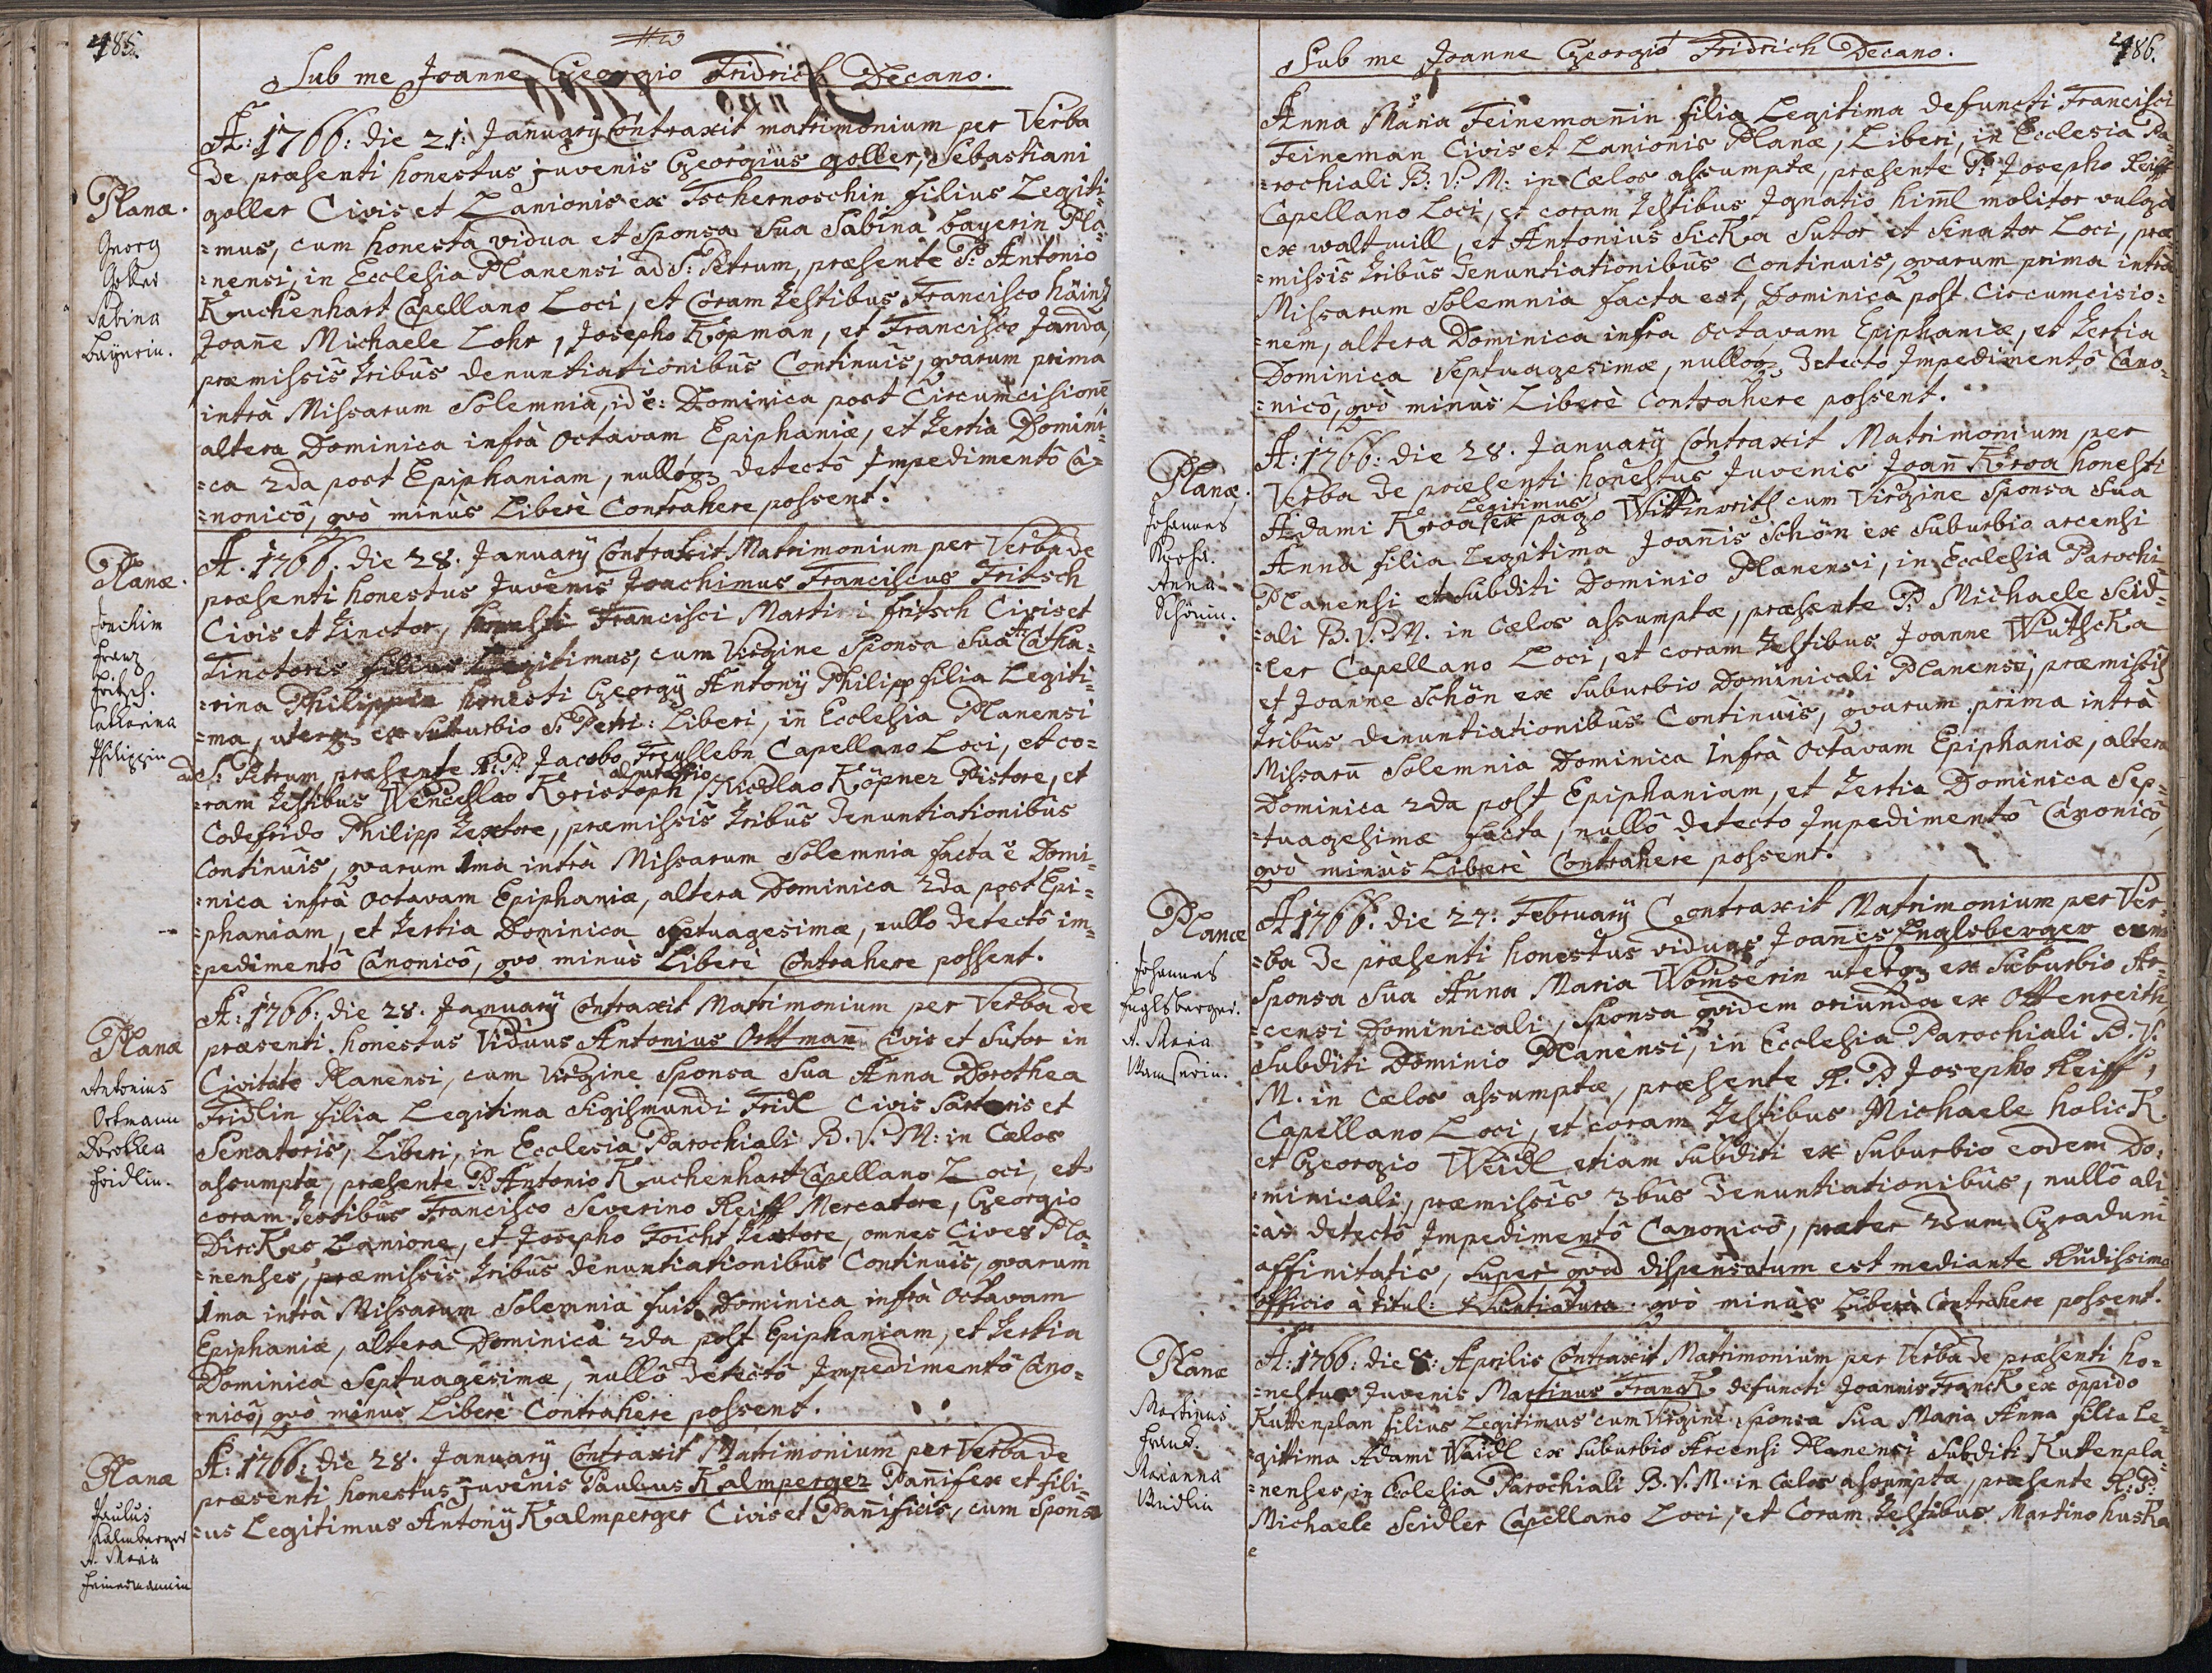 485.
Sub me Joanne Georgio Fridrich Decano.
A: 1766: die 21: Januarij Contraxit matrimonium per Verba
de præsenti honestus juvenis Georgius goller, Sebastiani
goller Civis et Lanionis ex Tschernoschin filius Legiti-
=mus, cum honesta vidua et Sponsa Sua Sabina bayerin Pla-
=nensi, in Ecclesia Planensi ad S: Petrum, præsente P: Antonio
Kuchenhart Capellano Loci, et Coram testibus Francisco
Joane Michaele Lohr, Josepho Köpman, et Francisco Janda,
præmissis tribus denuntiationibus Continuis, quarum prima
intrà Missarum Solemnia, id ẽ: Dominica post Circumcisionẽ
altera Dominica infrà Octavam Epiphaniæ, et tertia Domini-
=ca 2da post Epiphaniam, nulloq detectô Impedimentô Ca=
=nonicô, quò minùs Liberè Contrahere possent.
Planæ.
Georg
Goller
Sabina
bayerin.
A. 1766. die 28. Januarij Contraxit Matrimonium per Verba de
præsenti honestus Juvenis Joachimus Franciscus Fritsch
Civis et tinctor, honesti Francisci Martini fritsch Civis et
Tinctoris filius Legitimus, cum Virgine Sponsa Sua Catha=
=rina Philippin honesti Georgij Antonij Philipp filia Legiti=
=ma, uterq ex Suburbio S. Petri: Liberi, in Ecclesia Planensi
ad S: Petrum, præsente R: P: Jacobo Freyllebn Capellano Loci, et co=
=ram testibus Wenceslao Kristoph, Nicolao Köpner Pistore, et
Codefrido Philipp textore, præmissis tribus denuntiationibus
Continuis, quarum 1ma intrà Missarum Solemnia facta ẽ Domi=
=nica infrà Octavam Epiphaniæ, altera Dominica 2da post Epi=
=phaniam, et tertia Dominica Septuagesimæ, nullo detectô im=
=pedimentô Canonicô, quo minùs Liberè Contrahere possent.
Planæ.
Joachim
Franz
Fritsch.
Catharina
Philippin
A: 1766: die 28. Januarij Contraxit Matrimonium per Verba de
præsenti honestus Viduus Antonius Ortmañ Civis et Sutor in
Civitate Planensi, cum Virgine Sponsa Sua Anna Dorothea
Fridlin filia Legitima Sigismundi Fridl Civis Sartoris et
Senatoris, Liberi, in Ecclesia Parochiali B. V. M: in Cælos
assumptæ, præsente P: Antonio Kuchenhart Capellano Loci, et
coram testibus Francisco Severino Reiff Mercatore, Georgio
Lanione, et Josepho Foicht textore, omnes Cives Pla=
=nenses, præmissis tribus denuntiationibus Continuis, quarum
1ma intrà Missarum Solemnia fuit Dominica infrà Octavam
Epiphaniæ, altera Dominica 2da post Epiphaniam, et tertia
Dominica Septuagesimæ, nullô detectô Impedimentô Cano=
=nicô, quò minùs Liberè Contrahere possent.
Planæ
Antonius
Ortmann
Dorothea
Fridlin.
A: 1766: die 28. Januarij Contraxit Matrimonium per Verba de
præsenti honestus juvenis Paulus Kalmperger Pañifex et fili=
=us Legitimus Antonij Kalmperger Civis et Pañificis, cum Sponsa
Planæ
Paulus
Kalmberger
A. Maria
Feinemannin
486.
Sub me Joanne Georgiò Fridrich Decano.
Anna Maria Feinemañin filia Legitima defuncti Francisci
Feineman Civis et Lanionis Planæ, Liberi, in Ecclesia Pa=
=rochiali B: V: M: in Cælos assumptæ, præsente P: Josepho Reiff
Capellano Loci, et coram testibus Ignatio himl molitor vulgo
ex waltmill, et Antonius Sicka Sutor et Senator Loci, præ=
=missis tribus denuntiationibus Continuis, quarum prima intrà
Missarum Solemnia facta est, Dominica post Circumcisio=
=nem, altera Dominica infra Octavam Epiphaniæ, et tertia
Dominica Septuagesimæ, nulloq detecto Impedimentô Cano=
=nicô, quò minùs Liberè Contrahere possent.
A: 1766: die 28. Januarij Contraxit Matrimonium per
Verba de præsenti honestus Juvenis Joañ Kroa honesti
Adami Kroa Legitimus ex pago Wittinreith cum Virgine Sponsa Sua
Anna filia Legitima Joañis Schön ex Suburbio arcensi
Planensi et Subditi Dominio Planensi, in Ecclesia Parochi=
=ali B. V. M. in Cælos assumptæ, præsente P: Michaele Seid=
=ler Capellano Loci, et coram testibus Joanne Wutscka
et Joanne Schön ex Suburbio Dominicali Planensi, præmissis
tribus denuntiationibus Continuis, quarum prima intrà
Missarũ Solemnia Dominica Infrà Octavam Epiphaniæ, altera
Dominica 2da post Epiphaniam, et tertia Dominica Sep=
=tuagesimæ facta, nullô detecto Impedimentô Canonicô,
quò minùs Liberè Contrahere possent.
Planæ.
Johannes
Anna
Schönin.
A 1766. die 27: Februarij Contraxit Matrimonium per Ver=
=ba de præsenti honestus viduus Joañes Englsberger cum
Sponsa Sua Anna Maria Womserin uterq ex Suburbio Ar=
=censi Dominicali, Sponsa quidem oriunda ex Ottenreith,
Subditi Dominio Planensi, in Ecclesia Parochiali B. V.
M. in Cælos assumptæ, præsente R. P. Josepho Reiff,
Capellano Loci, et coram testibus Michaele holick
et Georgio Weidl etiam Subditi ex Suburbio eodem Do=
=minicali, præmissis 3bus denuntiationibus, nullô ali=
=às detectô Impedimentô Canonicô, præter Gradum
affinitatis, Super quo dispensatum est mediante Rñdissimo
officio à titul: Nuntiatura. quò minùs Liberè Contrahere possent.
Planæ
Johannes
Englsberger.
A. Maria
Wamserin.
A: 1766: die 8: Aprilis Contraxit Matrimonium per Verba de præsenti ho=
=nestus Juvenis Martinus Franck defuncti Joannis Franck ex oppido
Kuttenplan filius Legitimus cum Virgine Sponsa Sua Maria Anna filia Le=
=gittima Adami Waidl ex Suburbio Arcensi Planensi Subditi Kuttenpla=
=nenses, in Eclesia Parochiali B. V. M. in Cælos assumptæ, præsente R: P:
Michaele Seidler Capellano Loci, et Coram testibus Martino huska
Planæ
Martinus
Franck.
Marianna
Weidlin